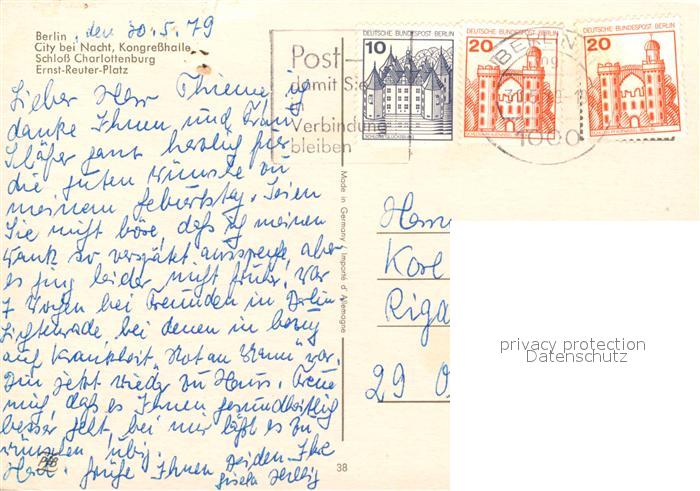 Berlin, den 30.5.79
City bei Nacht, Kongreßhalle
Schloß Charlottenburg
Ernst-Reuter-Platz
Lieber Herr Thieme ich
danke Ihnen und Frau
Schäfer ganz herzlich für
die guten Wünsche zu
meinem Geburtstag. Seien
Sie nicht böse, daß ich meinen
Dank so verspätet ausspreche, aber
es ging leider nicht früher. War
7 Wochen bei Freunden in Berlin
Lichtenrade, bei denen in bezug
auf Krankheit "Not am Mann" war.
Bin jetzt wieder zu Haus. Freue
mich, daß es Ihnen gesundheitlich
besser geht, bei mir läßt es zu
wünschen übrig.
Herz. Grüße Ihnen beiden Ihre
Gisela
PHB
38
Made in Germany Importé d'Allemagne
Post-
damit Sie in
Verbindung
bleiben
DEUTSCHE BUNDESPOST BERLIN
10
SCHLOSS GLÜCKSBURG
DEUTSCHE BUNDESPOST BERLIN
20
DEUTSCHE BUNDESPOST BERLIN
20
BERLIN
1000
Karl
Riga
29 O
privacy protection
Datenschutz